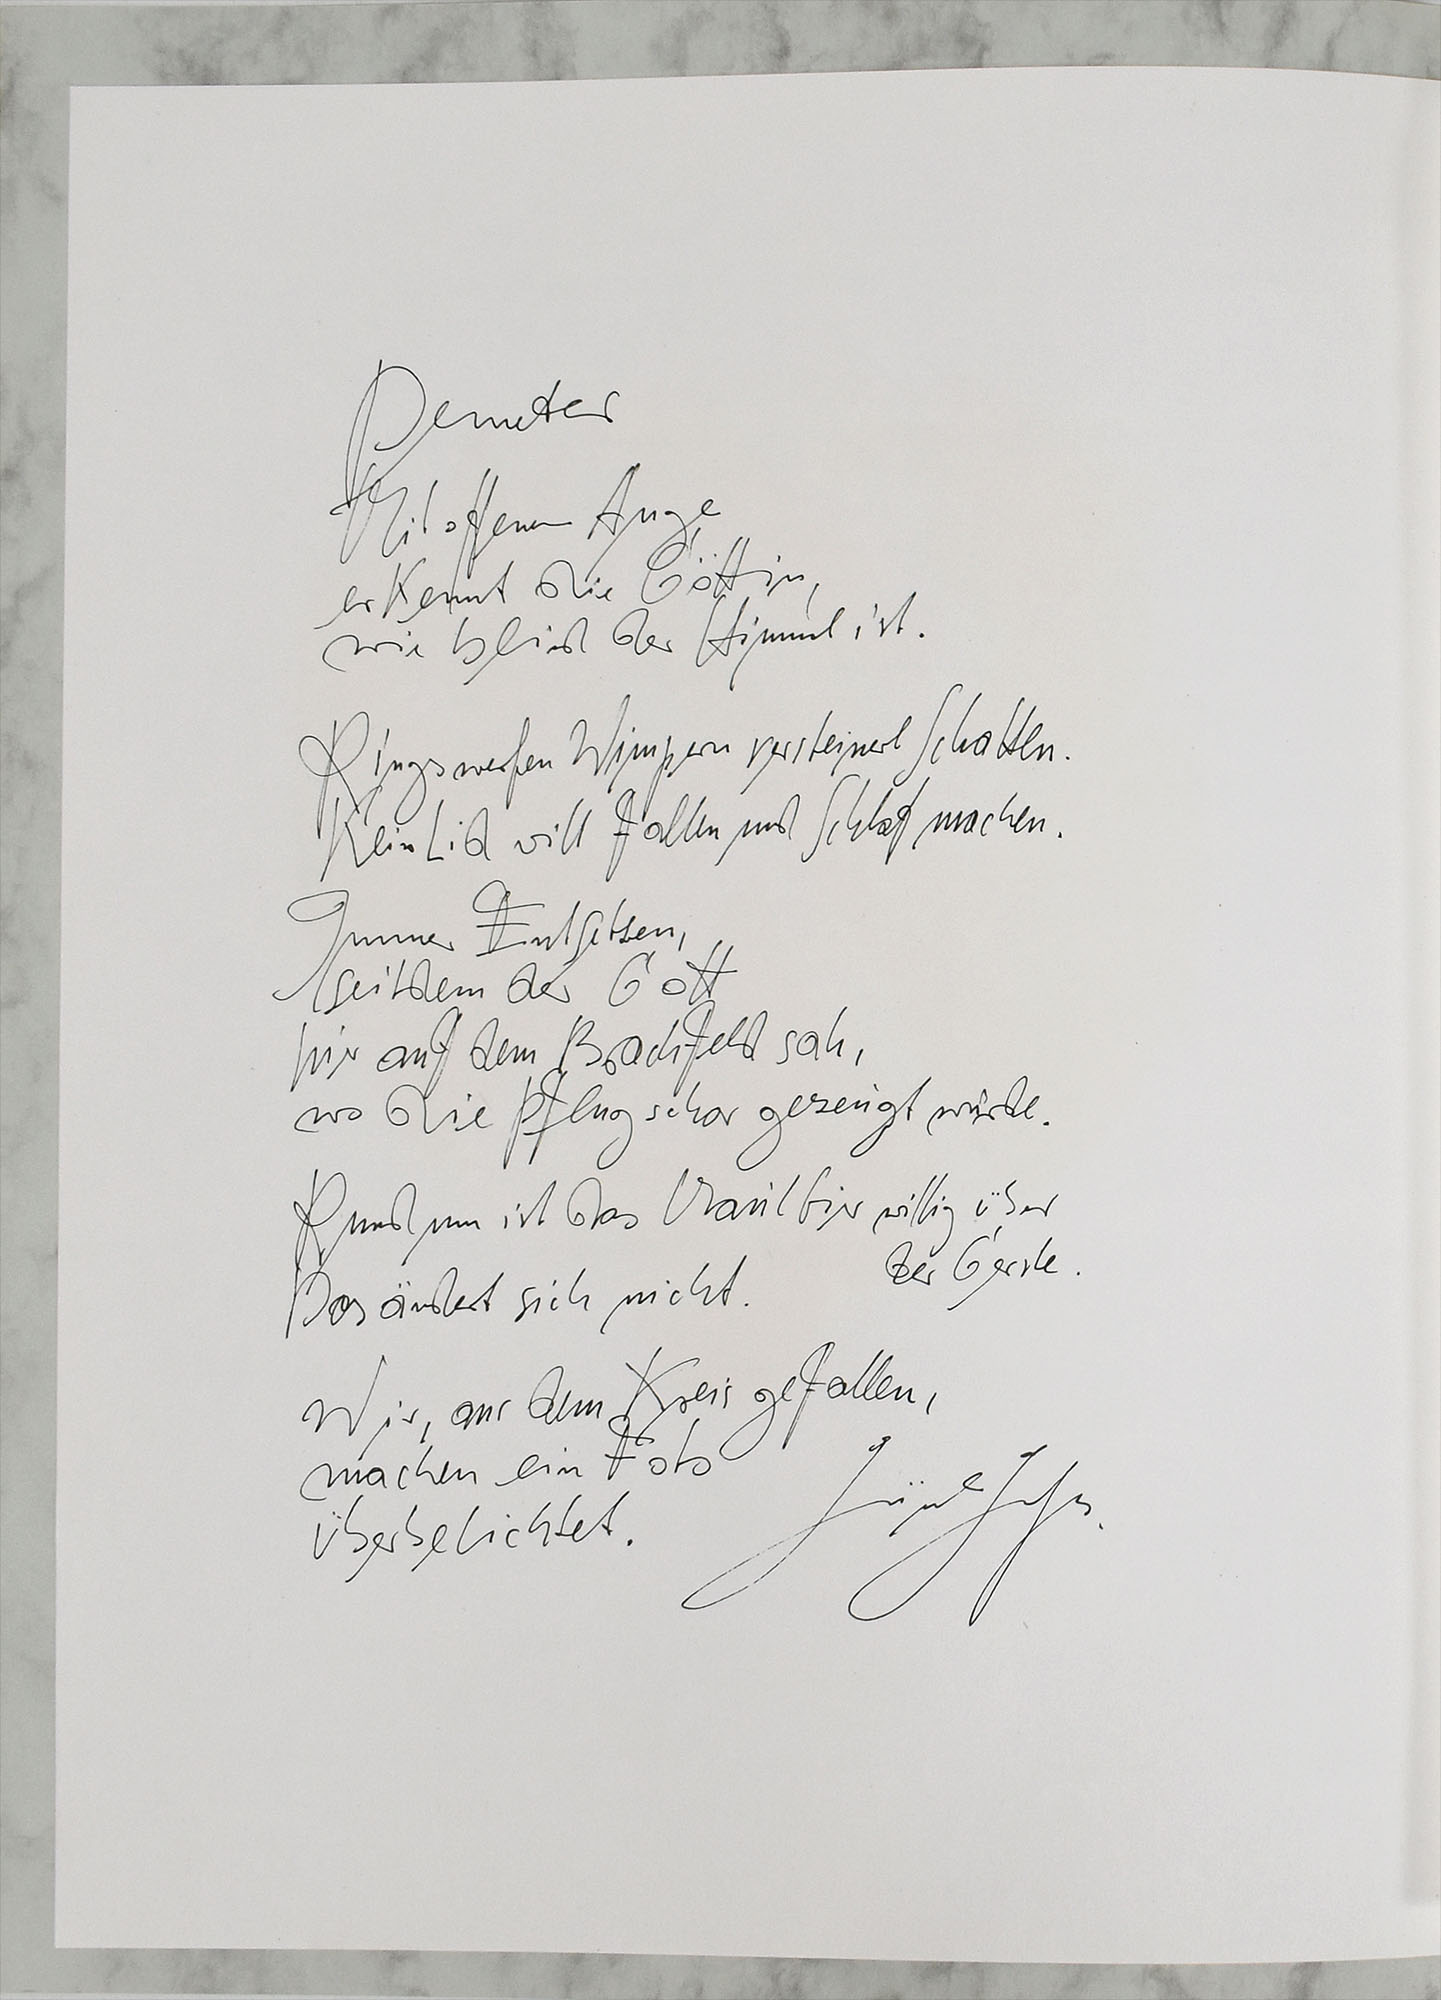 Demeter
Mit offenem Auge
erkennt die Göttin,
wie blind der Himmel ist.
Rings werfen Wimpern versteinert Schatten.
Kein Lid will fallen und Schlaf machen.
Immer Entsetzen,
seitdem der Gott
hier auf dem Brachfeld sah,
wo die Pflugschar gezeugt wurde.
Rundum ist das Maultier willig über
der Gerste.
Das ändert sich nicht.
Wir, aus dem Kreis gefallen,
machen ein Foto
überbelichtet.